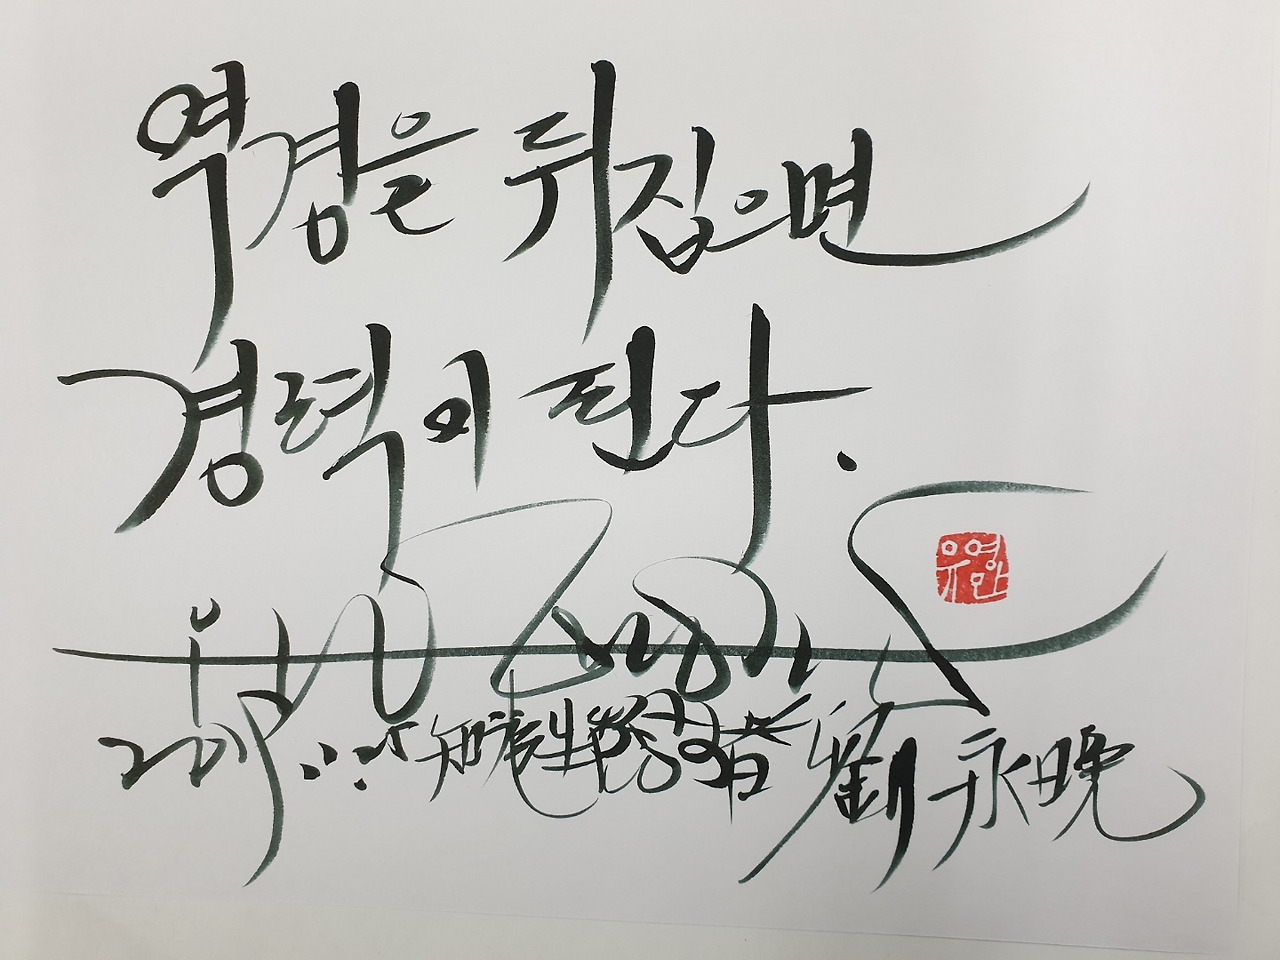 역경을 뒤집으면
경력이 된다.
유영만
知識生態學者 劉永晩